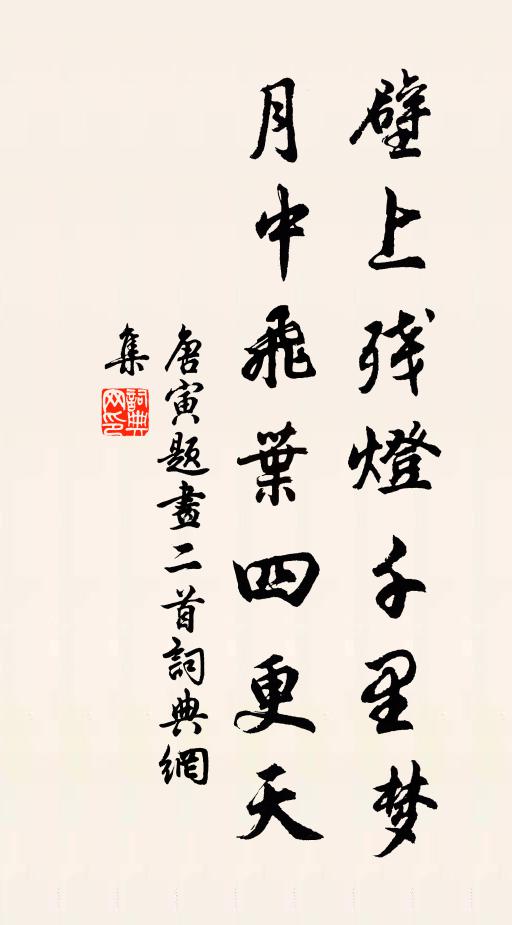 壁上残燈千里梦
月中飛葉四更天
唐寅題畫二首詞典網
集
詞典
网印